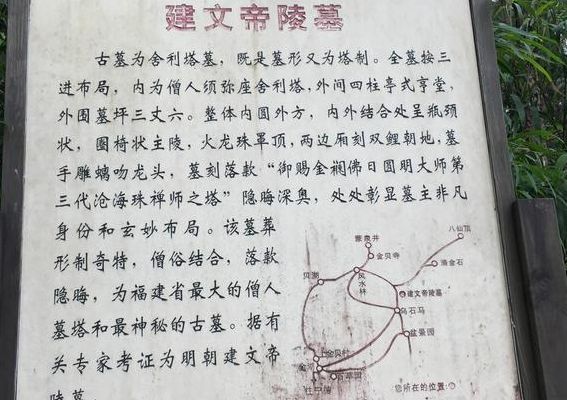 建文帝陵墓
古墓为舍利塔墓，既是墓形又为塔制。全墓按三
进布局，内为僧人须弥座舍利塔，外间四柱亭式享堂，
外围墓坪三丈六。整体内圆外方，内外结合处呈瓶颈
状，圈椅状主陵，火龙珠罩顶，两边厢刻双鲤朝地，墓
手雕螭吻龙头，墓刻落款“御赐金襕佛日圆明大师第
三代沧海珠禅师之塔”隐晦深奥，处处彰显墓主非凡
身份和玄妙布局。该墓葬
形制奇特，僧俗结合，落款
隐晦，为福建省最大的僧人
墓塔和最神秘的古墓。据有
关专家考证为明朝建文帝
陵墓
八仙顶
金贝寺
贝湖
风水林
建文帝陵墓
乌石马
盆景园
上金贝村
您所在的位置: